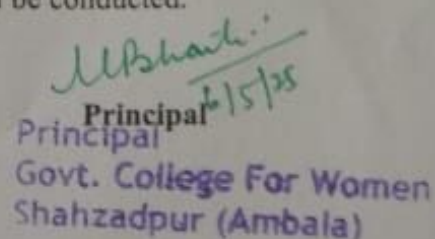 be conducted.
6/5/25
Principal
Principal
Govt. College For Women
Shahzadpur (Ambala)